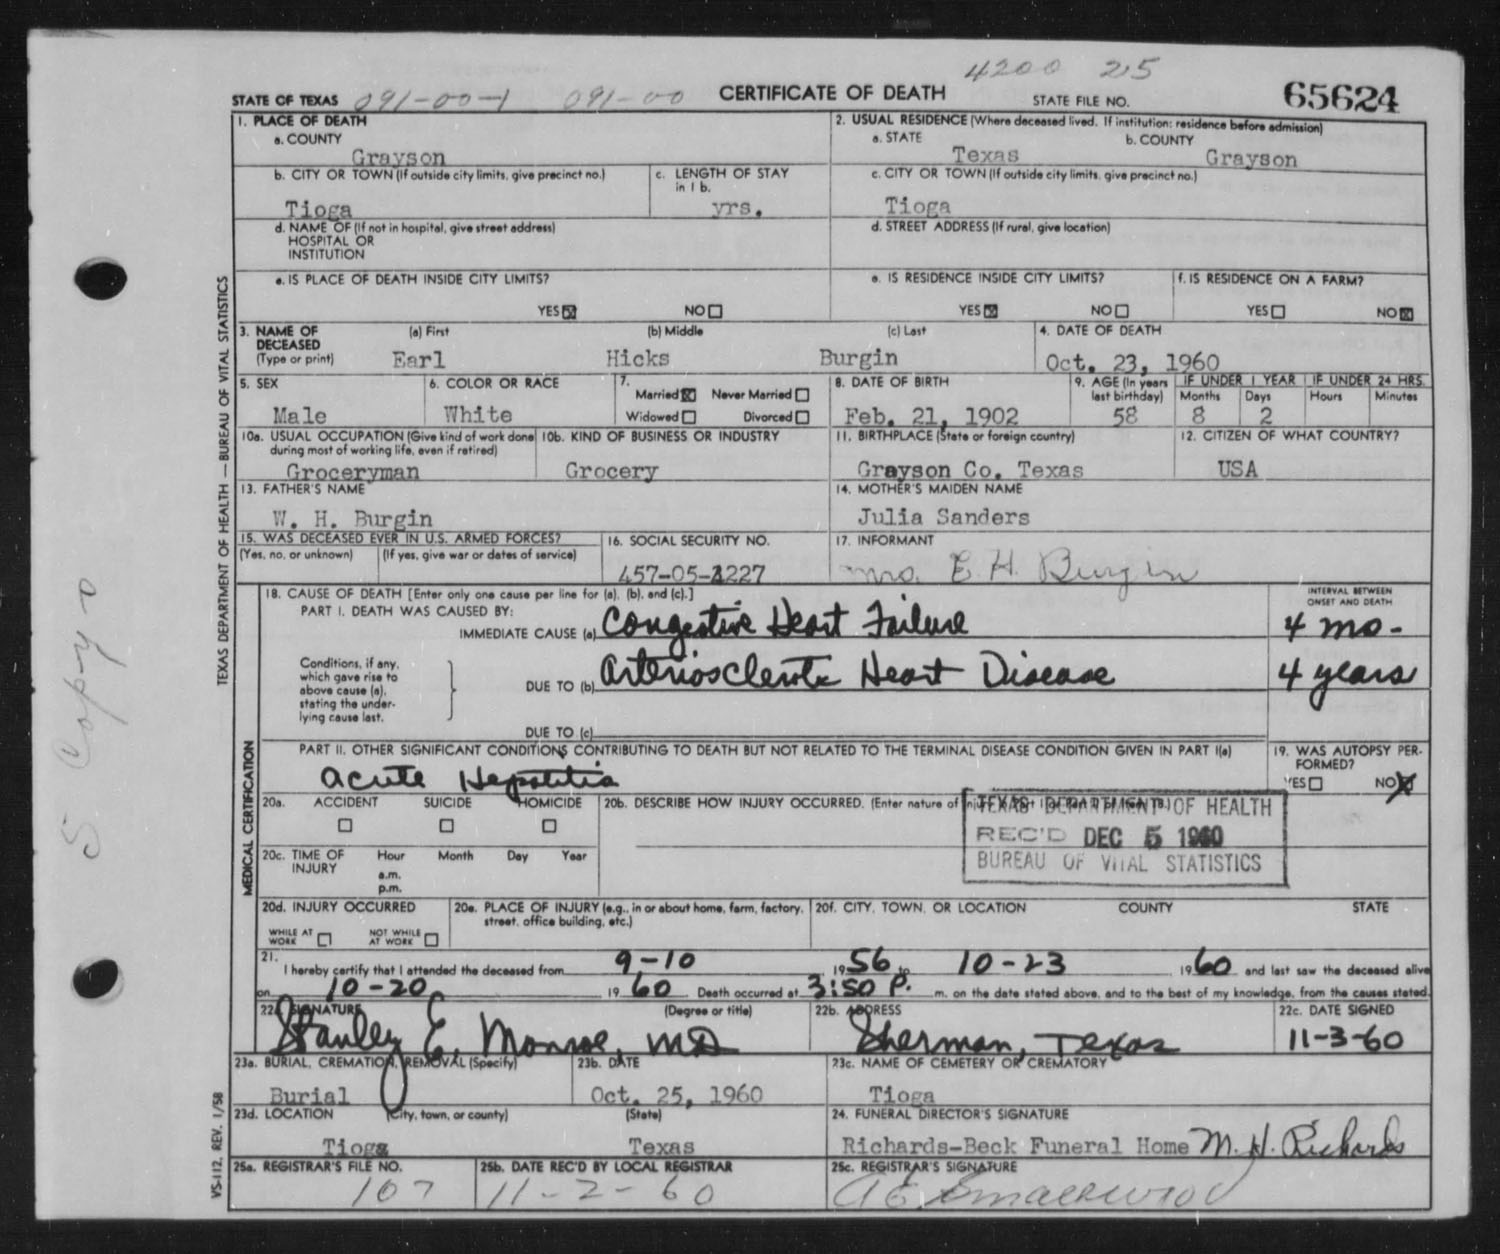 4200 215
STATE OF TEXAS 091-00-1 091-00 CERTIFICATE OF DEATH STATE FILE NO. 65624
1. PLACE OF DEATH
a. COUNTY
Grayson
2. USUAL RESIDENCE (Where deceased lived. If institution: residence before admission)
a. STATE b. COUNTY
Texas Grayson
b. CITY OR TOWN (If outside city limits, give precinct no.)
Tioga
c. LENGTH OF STAY
in 1 b.
yrs.
c. CITY OR TOWN (If outside city limits, give precinct no.)
Tioga
d. NAME OF (If not in hospital, give street address)
HOSPITAL OR
INSTITUTION
d. STREET ADDRESS (If rural, give location)
e. IS PLACE OF DEATH INSIDE CITY LIMITS?
YES NO
e. IS RESIDENCE INSIDE CITY LIMITS?
YES NO
f. IS RESIDENCE ON A FARM?
YES NO
3. NAME OF
DECEASED
(Type or print)
(a) First (b) Middle (c) Last
Earl Hicks Burgin
4. DATE OF DEATH
Oct. 23, 1960
5. SEX
Male
6. COLOR OR RACE
White
7.
Married Never Married
Widowed Divorced
8. DATE OF BIRTH
Feb. 21, 1902
9. AGE (In years
last birthday)
58
IF UNDER 1 YEAR IF UNDER 24 HRS.
Months Days Hours Minutes
8 2
10a. USUAL OCCUPATION (Give kind of work done
during most of working life, even if retired)
Groceryman
10b. KIND OF BUSINESS OR INDUSTRY
Grocery
11. BIRTHPLACE (State or foreign country)
Grayson Co. Texas
12. CITIZEN OF WHAT COUNTRY?
USA
13. FATHER'S NAME
W. H. Burgin
14. MOTHER'S MAIDEN NAME
Julia Sanders
15. WAS DECEASED EVER IN U.S. ARMED FORCES?
(Yes, no, or unknown) (If yes, give war or dates of service)
16. SOCIAL SECURITY NO.
457-05-1227
17. INFORMANT
Mrs. E. H. Burgin
18. CAUSE OF DEATH [Enter only one cause per line for (a), (b), and (c).]
PART I. DEATH WAS CAUSED BY:
IMMEDIATE CAUSE (a) Congestive Heart Failure
INTERVAL BETWEEN
ONSET AND DEATH
4 mo-
Conditions, if any,
which gave rise to
above cause (a),
stating the under-
lying cause last.
DUE TO (b) Arteriosclerotic Heart Disease 4 years
DUE TO (c)
PART II. OTHER SIGNIFICANT CONDITIONS CONTRIBUTING TO DEATH BUT NOT RELATED TO THE TERMINAL DISEASE CONDITION GIVEN IN PART I(a)
Acute Hepatitis
19. WAS AUTOPSY PER-
FORMED?
YES NO
20a. ACCIDENT SUICIDE HOMICIDE
20b. DESCRIBE HOW INJURY OCCURRED. (Enter nature of
TEXAS DEPARTMENT OF HEALTH
REC'D DEC 5 1960
BUREAU OF VITAL STATISTICS
20c. TIME OF
INJURY
Hour Month Day Year
a.m.
p.m.
20d. INJURY OCCURRED
WHILE AT
WORK
NOT WHILE
AT WORK
20e. PLACE OF INJURY (e.g., in or about home, farm, factory,
street, office building, etc.)
20f. CITY, TOWN, OR LOCATION COUNTY STATE
21.
I hereby certify that I attended the deceased from 9-10 1956 to 10-23 1960 and last saw the deceased alive
on 10-20 1960 Death occurred at 3:50 P. m. on the date stated above, and to the best of my knowledge, from the causes stated.
22a. SIGNATURE (Degree or title)
Stanley E. Monroe, MD
22b. ADDRESS
Sherman, Texas
22c. DATE SIGNED
11-3-60
23a. BURIAL, CREMATION, REMOVAL (Specify)
Burial
23b. DATE
Oct. 25, 1960
23c. NAME OF CEMETERY OR CREMATORY
Tioga
23d. LOCATION (City, town, or county) (State)
Tioga Texas
24. FUNERAL DIRECTOR'S SIGNATURE
Richards-Beck Funeral Home M. H. Richards
25a. REGISTRAR'S FILE NO.
107
25b. DATE REC'D BY LOCAL REGISTRAR
11-2-60
25c. REGISTRAR'S SIGNATURE
A E Smallwood
TEXAS DEPARTMENT OF HEALTH — BUREAU OF VITAL STATISTICS
MEDICAL CERTIFICATION
VS-112, REV. 1/58
5 Copy